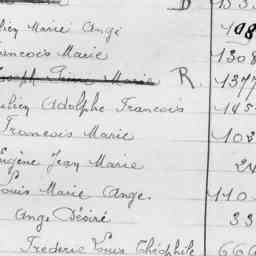 D 133
Marie Ange 108
Francois Marie 1308
Joseph Marie R. 1377
Adolphe Francois 145
Francois Marie 102
Eugène Jean Marie 24
Louis Marie Ange. 110
Ange Désiré 33
Frederic Louis Théophile 666